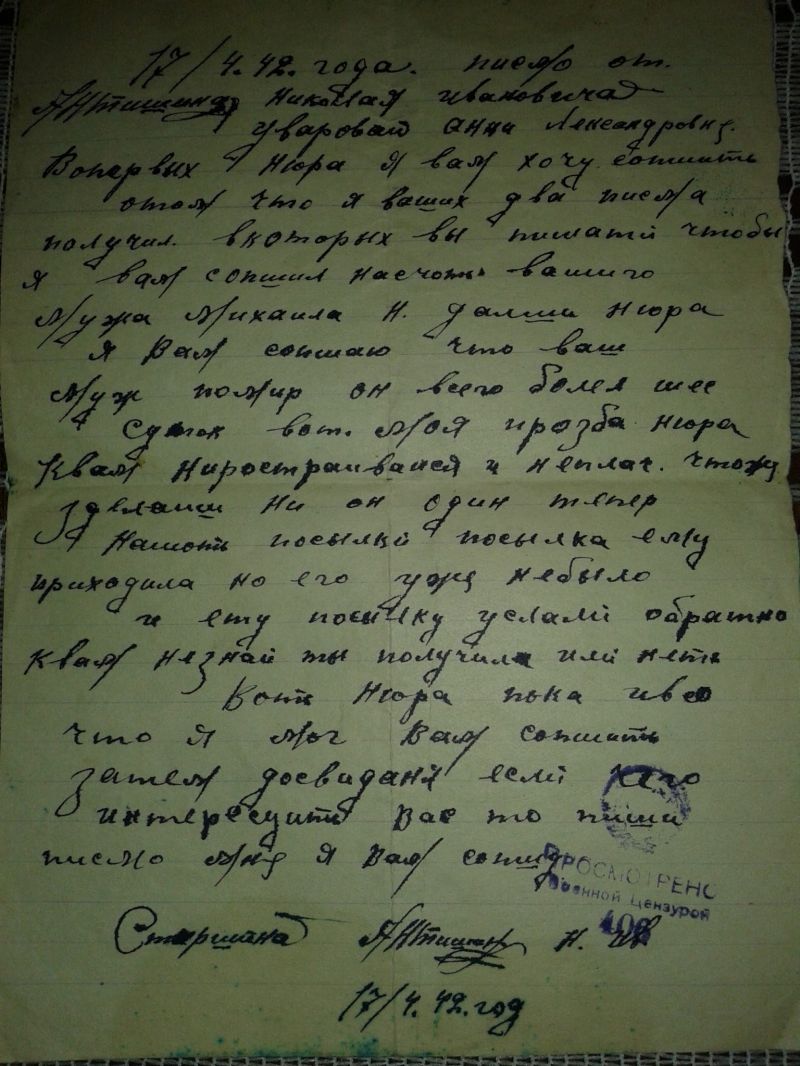 17/4.42. года. писмо от.
Антишина Николая Ивановича
Уваровай Анни Лександровне.
Вопервых Нюра я вам хочу сопшить
отом что я ваших два писма
получил. вкоторых вы пишати чтобы
я вам сопшил насчоть вашиго
Мужа Михаила Н. далши Нюра
я Вам сопшаю что ваш
Муж помир он всего болел шес
суток вот. Моя прозба Нюра
Квам Нирострaивайся и неплач. чтожу
зделаиш ни он один тепер
Нашоть посылки посылка ему
приходила но его уже небыло
и ету посылку услали обратно
Квам незнай ты получила или неть
Воть Нюра пока ивсо
что я мог Вам сопшить
затем досвиданя если кого
интересуить Вас то пиши
писмо мне я Вам сопшу
ПРОСМОТРЕНО
Военной Цензурой
Старшина Антишин Н. Ив
17/4.42.год